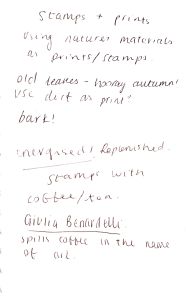 Stamps + prints
Using natures materials
as prints/stamps.
old leaves - hooray autumn!
use dirt as print!
bark!
increased/ Replenished.
Stamps with
coffee/tea.
Giulia Bernardelli.
spills coffee in the name
of art.